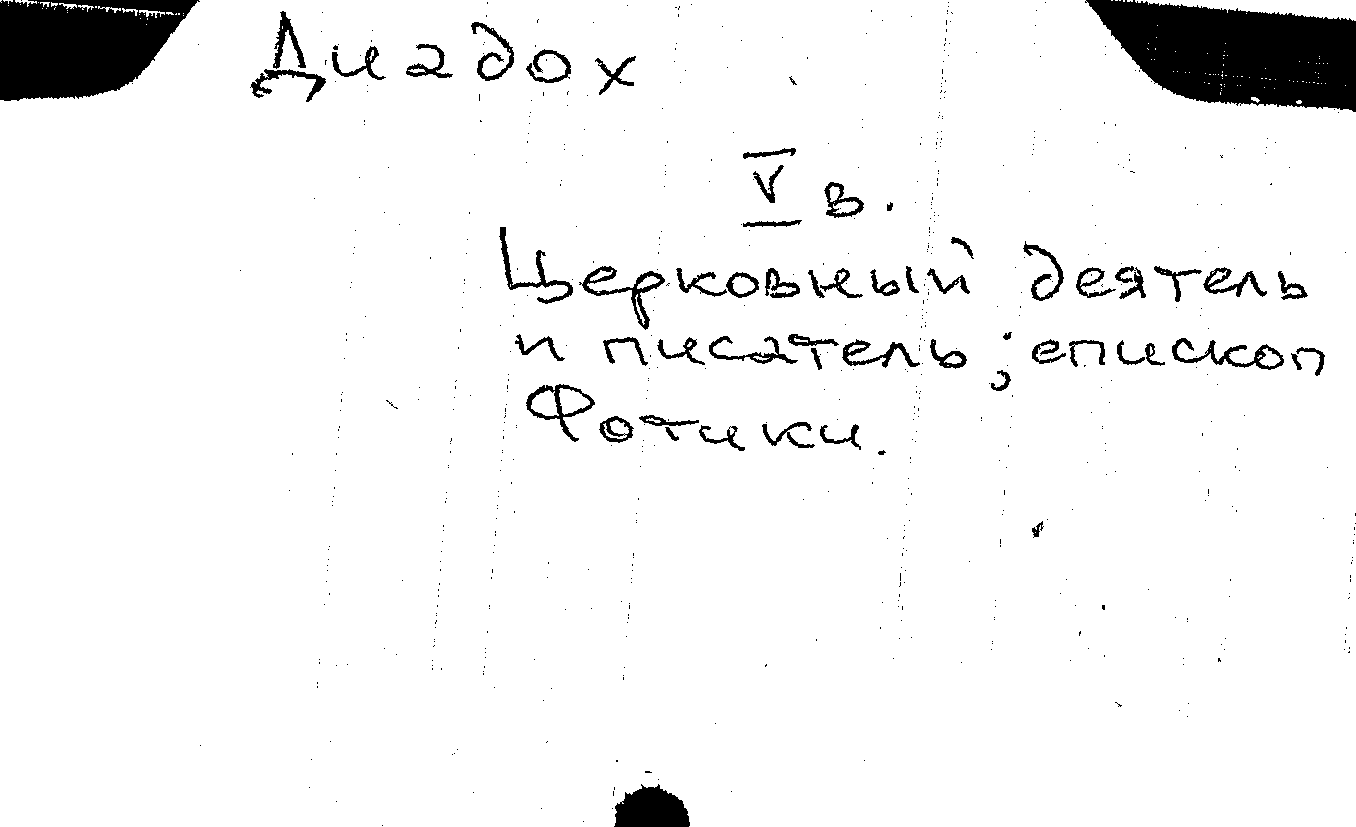 Диадох
V в.
Церковный деятель
и писатель; епископ
Фотики.